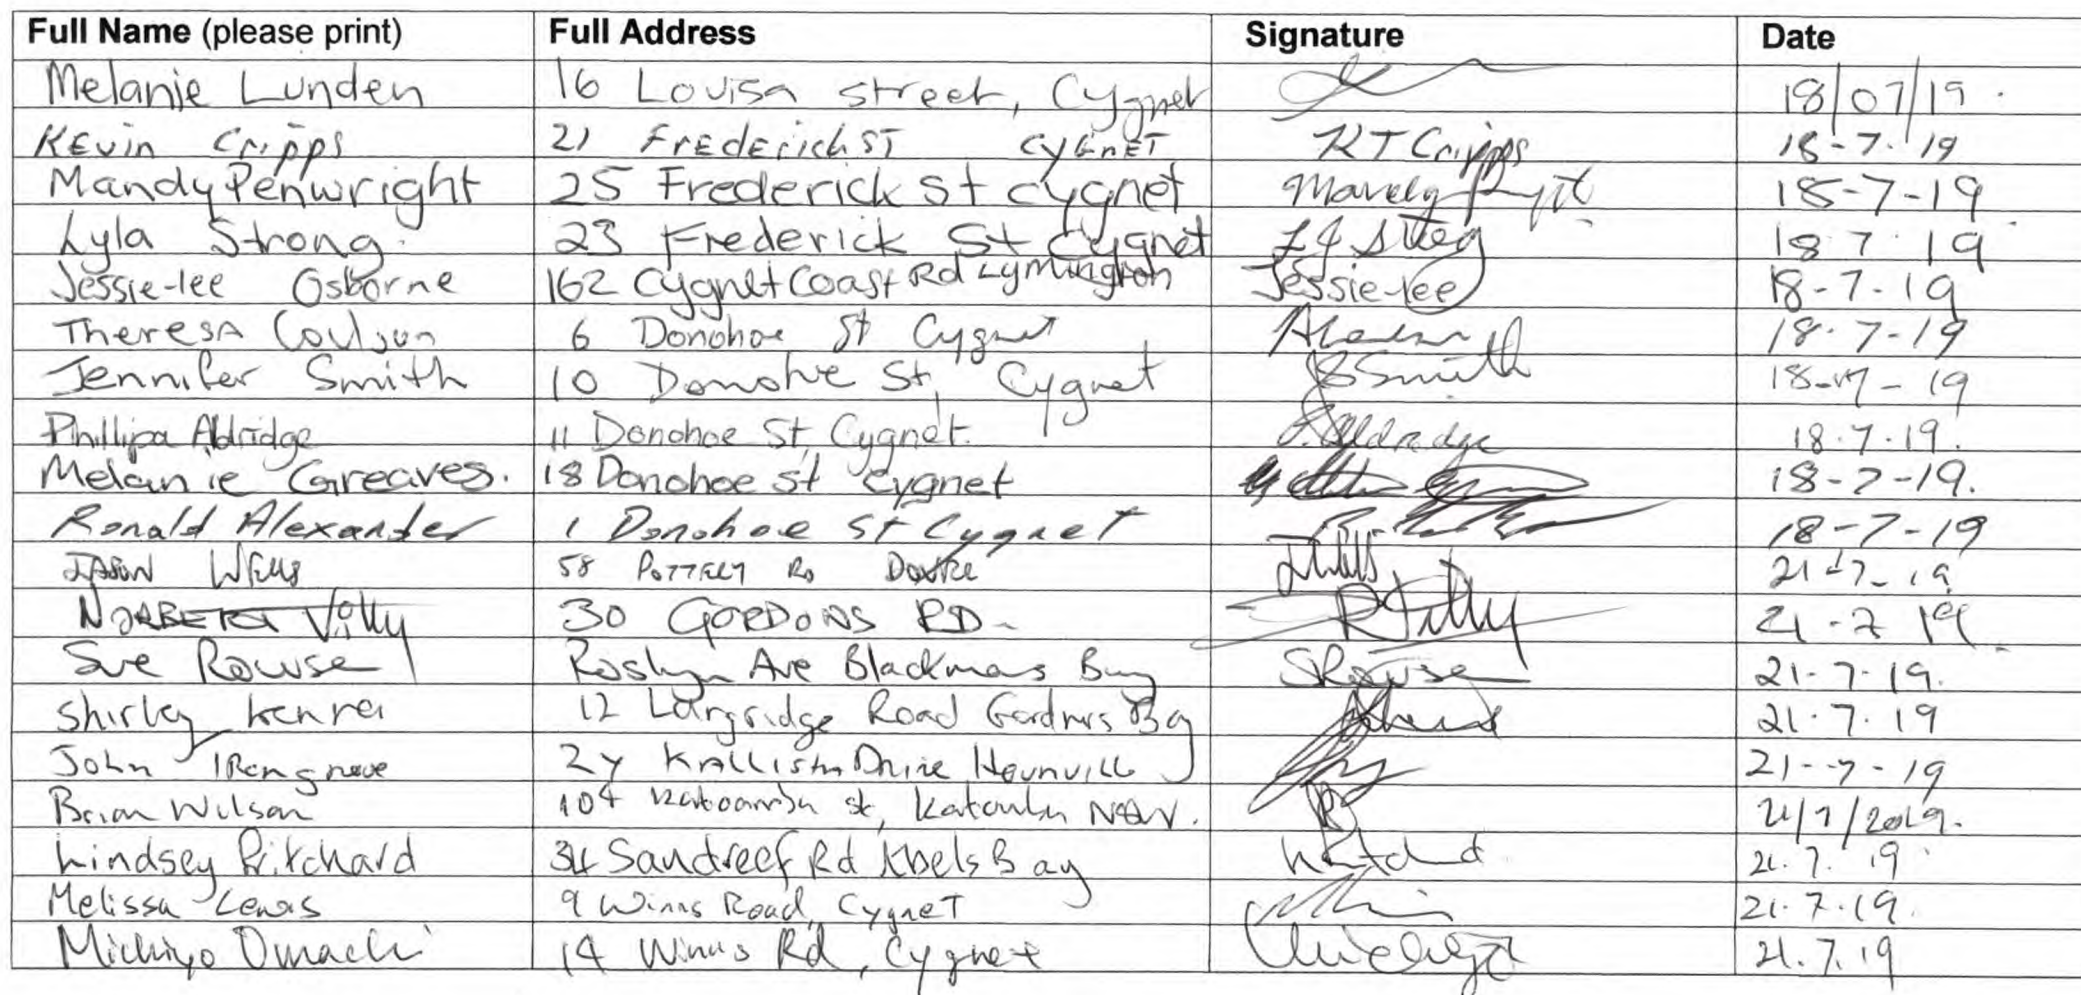 Full Name (please print) Full Address Signature Date
Melanie Lunden 16 Louisa street, Cygnet 18/07/19.
Kevin Cripps 21 Frederich ST Cygnet KT Cripps 18-7-19
Mandy Penwright 25 Frederick St Cygnet 18-7-19
Lyla Strong. 23 Frederick St Cygnet 18 7 19
Jessie-lee Osborne 162 Cygnet Coast Rd Lymington Jessie-lee 18-7-19
Theresa Coulson 6 Donohoe St Cygnet 18-7-19
Jennifer Smith 10 Donohve St, Cygnet JSmith 18-7-19
Phillipa Aldridge 11 Donohoe St, Cygnet. P. Aldridge 18.7.19.
Melanie Greaves. 18 Donohoe St Cygnet 18-7-19.
Ronald Alexander 1 Donohoe St Cygnet 18-7-19
Jason Wells 58 Pottery Rd 21-7-19
Norbert 30 GORDONS RD. 21-7 19
Sue Rowse Roslyn Ave Blackmans Bay SRowse 21-7-19.
Shirley 12 Langridge Road Gardners Bay 21.7.19
John Kallista Drive 21-7-19
Brian Wilson 104 Katoomba st, Katoomba NSW. 21/7/2019.
Lindsey Pritchard 34 Sandreef Rd Abels Bay 21.7.19
Melissa Lewis 9 Winns Road, Cygnet 21.7.19.
Michiyo Omachi 14 Winns Rd, Cygnet Michiyo 21.7.19